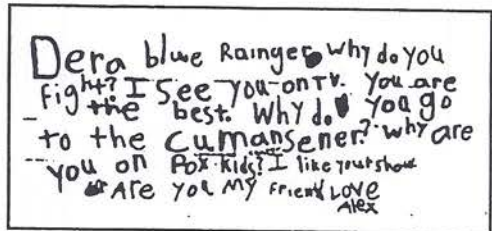 Dera blue Rainger Why do you
Fight? I See you on TV. You are
the best. Why do you go
to the cumansener? why are
you on Fox kids? I like yourt show
Are you My Friend Love
Alex